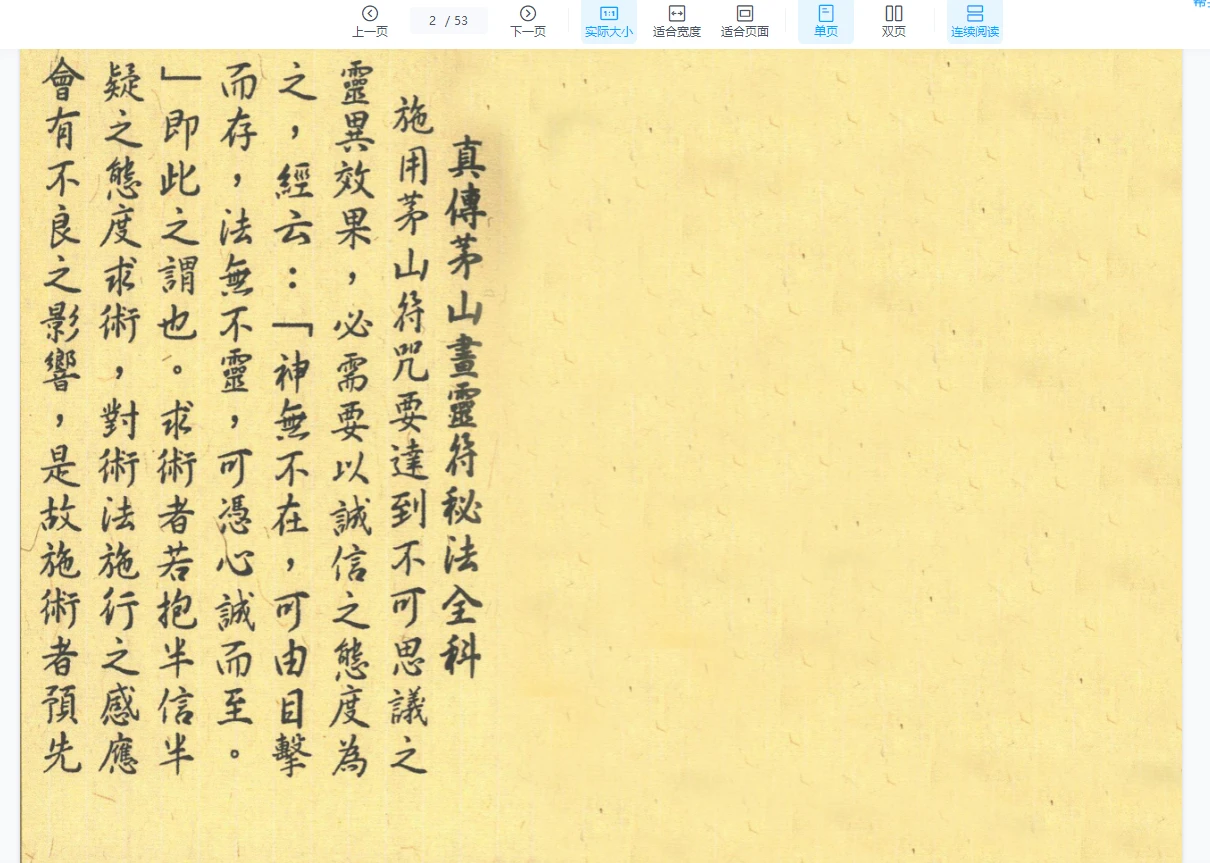 上一页
2 / 53
下一页
1:1
实际大小
适合宽度
适合页面
单页
双页
连续阅读
真傳茅山畫靈符秘法全科
施用茅山符咒要達到不可思議之
靈異效果，必需要以誠信之態度為
之，經云：「神無不在，可由目擊
而存，法無不靈，可憑心誠而至。
」即此之謂也。求術者若抱半信半
疑之態度求術，對術法施行之感應
會有不良之影響，是故施術者預先